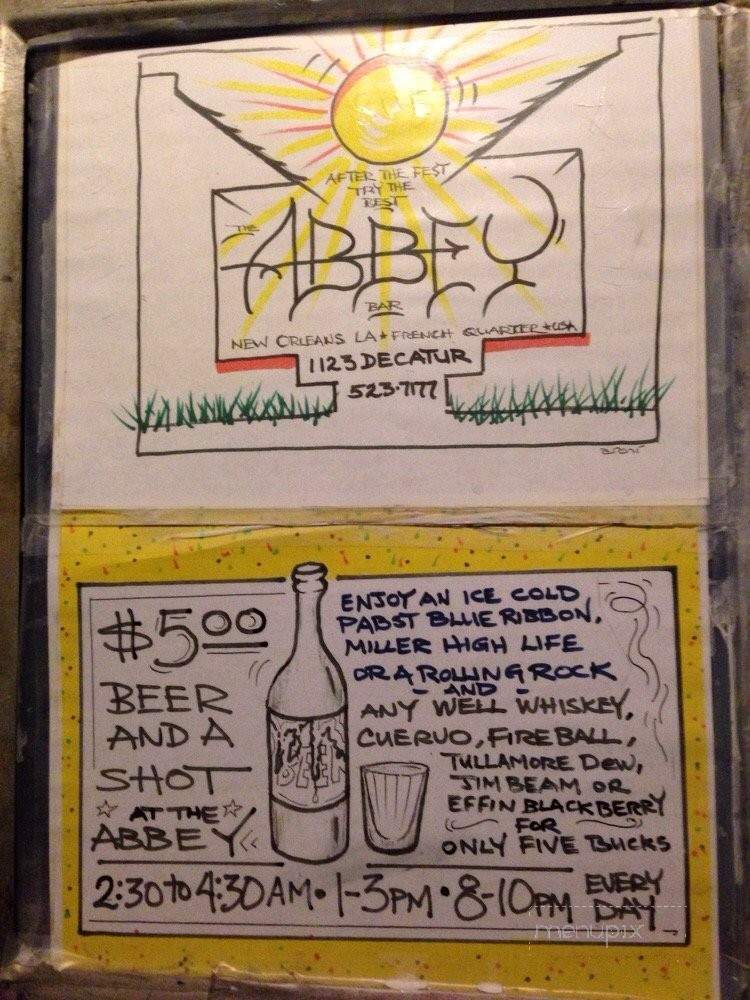 AFTER THE FEST
TRY THE
BEST
THE
ABBEY
BAR
NEW ORLEANS LA★FRENCH QUARTER★USA
1123 DECATUR
523·7177
$5.00
BEER
AND A
SHOT
☆AT THE☆
ABBEY
BEER
ENJOY AN ICE COLD
PABST BLUE RIBBON,
MILLER HIGH LIFE
OR A ROLLING ROCK
- AND -
ANY WELL WHISKEY,
CUERVO, FIREBALL,
TULLAMORE DEW,
JIM BEAM OR
EFFIN BLACKBERRY
FOR
ONLY FIVE BUCKS
2:30 to 4:30AM • 1-3PM • 8-10PM EVERY
DAY
menupix